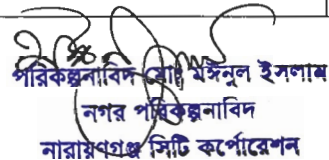 পরিকল্পনাবিদ মোঃ মঈনুল ইসলাম
নগর পরিকল্পনাবিদ
নারায়ণগঞ্জ সিটি কর্পোরেশন